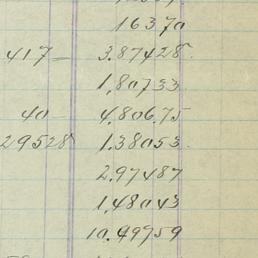 16370
417 — 3.87428
1,80733
40 — 4,806.75
29528 1.38053
2.97487
1,48043
10,49959